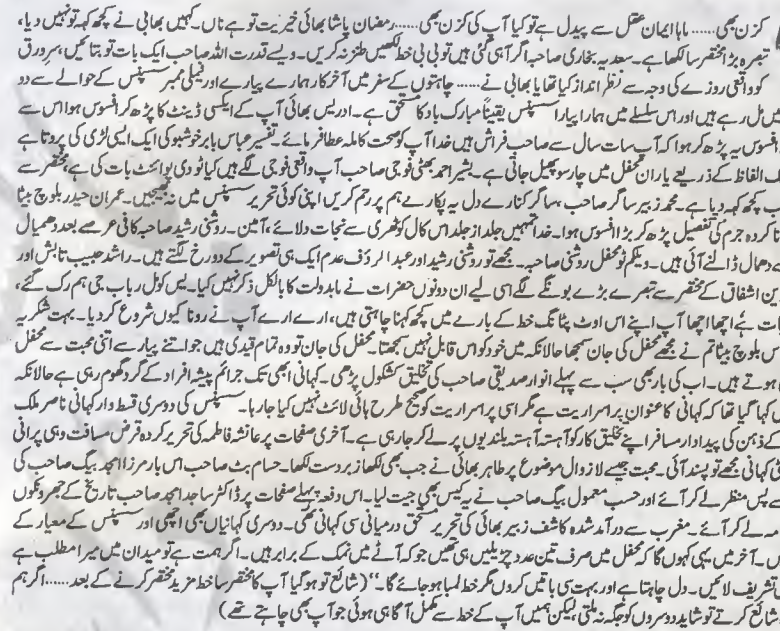 کزن بھی...... ماہا ایمان عقل سے پیدل ہے تو کیا آپ کی کزن بھی...... رمضان پاشا بھائی خیریت تو ہے ناں۔ کہیں بھابی نے کچھ کہہ تو نہیں دیا،
تبصرہ بڑا مختصر سا لکھا ہے۔ سعدیہ بخاری صاحبہ اگر آ ہی گئی ہیں تو بی بی خط لکھیں طنز نہ کریں۔ ویسے قدرت اللہ صاحب ایک بات تو بتائیں، سرورق
کو واقعی روزے کی وجہ سے نظر انداز کیا تھا یا بھابی نے...... چاہتوں کے سفر میں آخر کار ہمارے پیارے اور فیملی ممبر سسپنس کے حوالے سے دو
میں مل رہے ہیں اور اس سلسلے میں ہمارا پیارا سسپنس یقیناً مبارک باد کا مستحق ہے۔ ادریس بھائی آپ کے ایکسی ڈینٹ کا پڑھ کر افسوس ہوا اس سے
افسوس یہ پڑھ کر ہوا کہ آپ سات سال سے صاحب فراش ہیں خدا آپ کو صحت کاملہ عطا فرمائے۔ تفسیر عباس بابر خوشبو کی ایک ایسی لڑی کی پروتا ہے
الفاظ کے ذریعے یاران محفل میں چار سو پھیل جاتی ہے۔ بشیر احمد بھٹی فوجی صاحب آپ واقعی فوجی لگے ہیں کیا ٹو دی پوائنٹ بات کی ہے، مختصر سے
کچھ کہہ دیا ہے۔ محمد زبیر ساگر صاحب، ساگر کنارے دل یہ پکارے ہم پر رحم کریں اپنی کوئی تحریر سسپنس میں نہ بھیجیں۔ عمران حیدر بلوچ بیٹا
کردہ جرم کی تفصیل پڑھ کر بڑا افسوس ہوا۔ خدا تمہیں جلد از جلد اس کال کوٹھری سے نجات دلائے، آمین۔ روشنی رشید صاحبہ کافی عرصے بعد دھمیال
سے دھمال ڈالنے آئی ہیں۔ ویلکم ٹو محفل روشنی صاحبہ۔ مجھے تو روشنی رشید اور عبدالرؤف عدم ایک ہی تصویر کے دو رخ لگتے ہیں۔ راشد حبیب تابش اور
اشفاق کے مختصر سے تبصرے بڑے بونگے لگے اسی لیے ان دونوں حضرات نے مابدولت کا بالکل ذکر نہیں کیا۔ یس کول رباب جی ہم رک گئے،
اچھا اچھا آپ اپنے اس اوٹ پٹانگ خط کے بارے میں کچھ کہنا چاہتی ہیں، ارے ارے آپ نے رونا کیوں شروع کر دیا۔ بہت شکریہ
بلوچ بیٹا تم نے مجھے محفل کی جان سمجھا حالانکہ میں خود کو اس قابل نہیں سمجھتا۔ محفل کی جان تو وہ تمام قیدی ہیں جو اتنے پیار سے اتنی محبت سے محفل
ہوتے ہیں۔ اب کی بار بھی سب سے پہلے انوار صدیقی صاحب کی تخلیق کشکول پڑھی۔ کہانی ابھی تک جرائم پیشہ افراد کے گرد گھوم رہی ہے حالانکہ
کہا گیا تھا کہ کہانی کا عنوان پراسراریت ہے مگر اسی پراسراریت کو صحیح طرح ہائی لائٹ نہیں کیا جا رہا۔ سسپنس کی دوسری قسط وار کہانی ناصر ملک
کے ذہن کی پیداوار مسافر اپنے تخلیق کار کو آہستہ آہستہ بلندیوں پر لے کر جا رہی ہے۔ آخری صفحات پر عائشہ فاطمہ کی تحریر کردہ قرض مسافت وہی پرانی
کہانی مجھے تو پسند آئی۔ محبت جیسے لازوال موضوع پر طاہر بھائی نے جب بھی لکھا زبردست لکھا۔ حسام بٹ صاحب اس بار مرزا امجد بیگ صاحب کی
پس منظر لے کر آئے اور حسب معمول بیگ صاحب نے یہ کیس بھی جیت لیا۔ اس دفعہ پہلے صفحات پر ڈاکٹر ساجد امجد صاحب تاریخ کے جھروکوں
لے کر آئے۔ مغرب سے درآمد شدہ کاشف زبیر بھائی کی تحریر مستحق درمیانی سی کہانی تھی۔ دوسری کہانیاں بھی اچھی اور سسپنس کے معیار کے
آخر میں یہی کہوں گا کہ محفل میں صرف تین عدد چڑیلیں ہی تھیں جو کہ آٹے میں نمک کے برابر ہیں۔ اگر ہمت ہے تو میدان میں میرا مطلب ہے
تشریف لائیں۔ دل چاہتا ہے اور بہت سی باتیں کروں مگر خط لمبا ہو جائے گا۔“ (شائع تو ہو گیا آپ کا مختصر سا خط مزید مختصر کرنے کے بعد...... اگر ہم
شائع کرتے تو شاید دوسروں کو جگہ نہ ملتی لیکن ہمیں آپ کے خط سے مکمل آگاہی ہوئی جو آپ بھی چاہتے تھے)